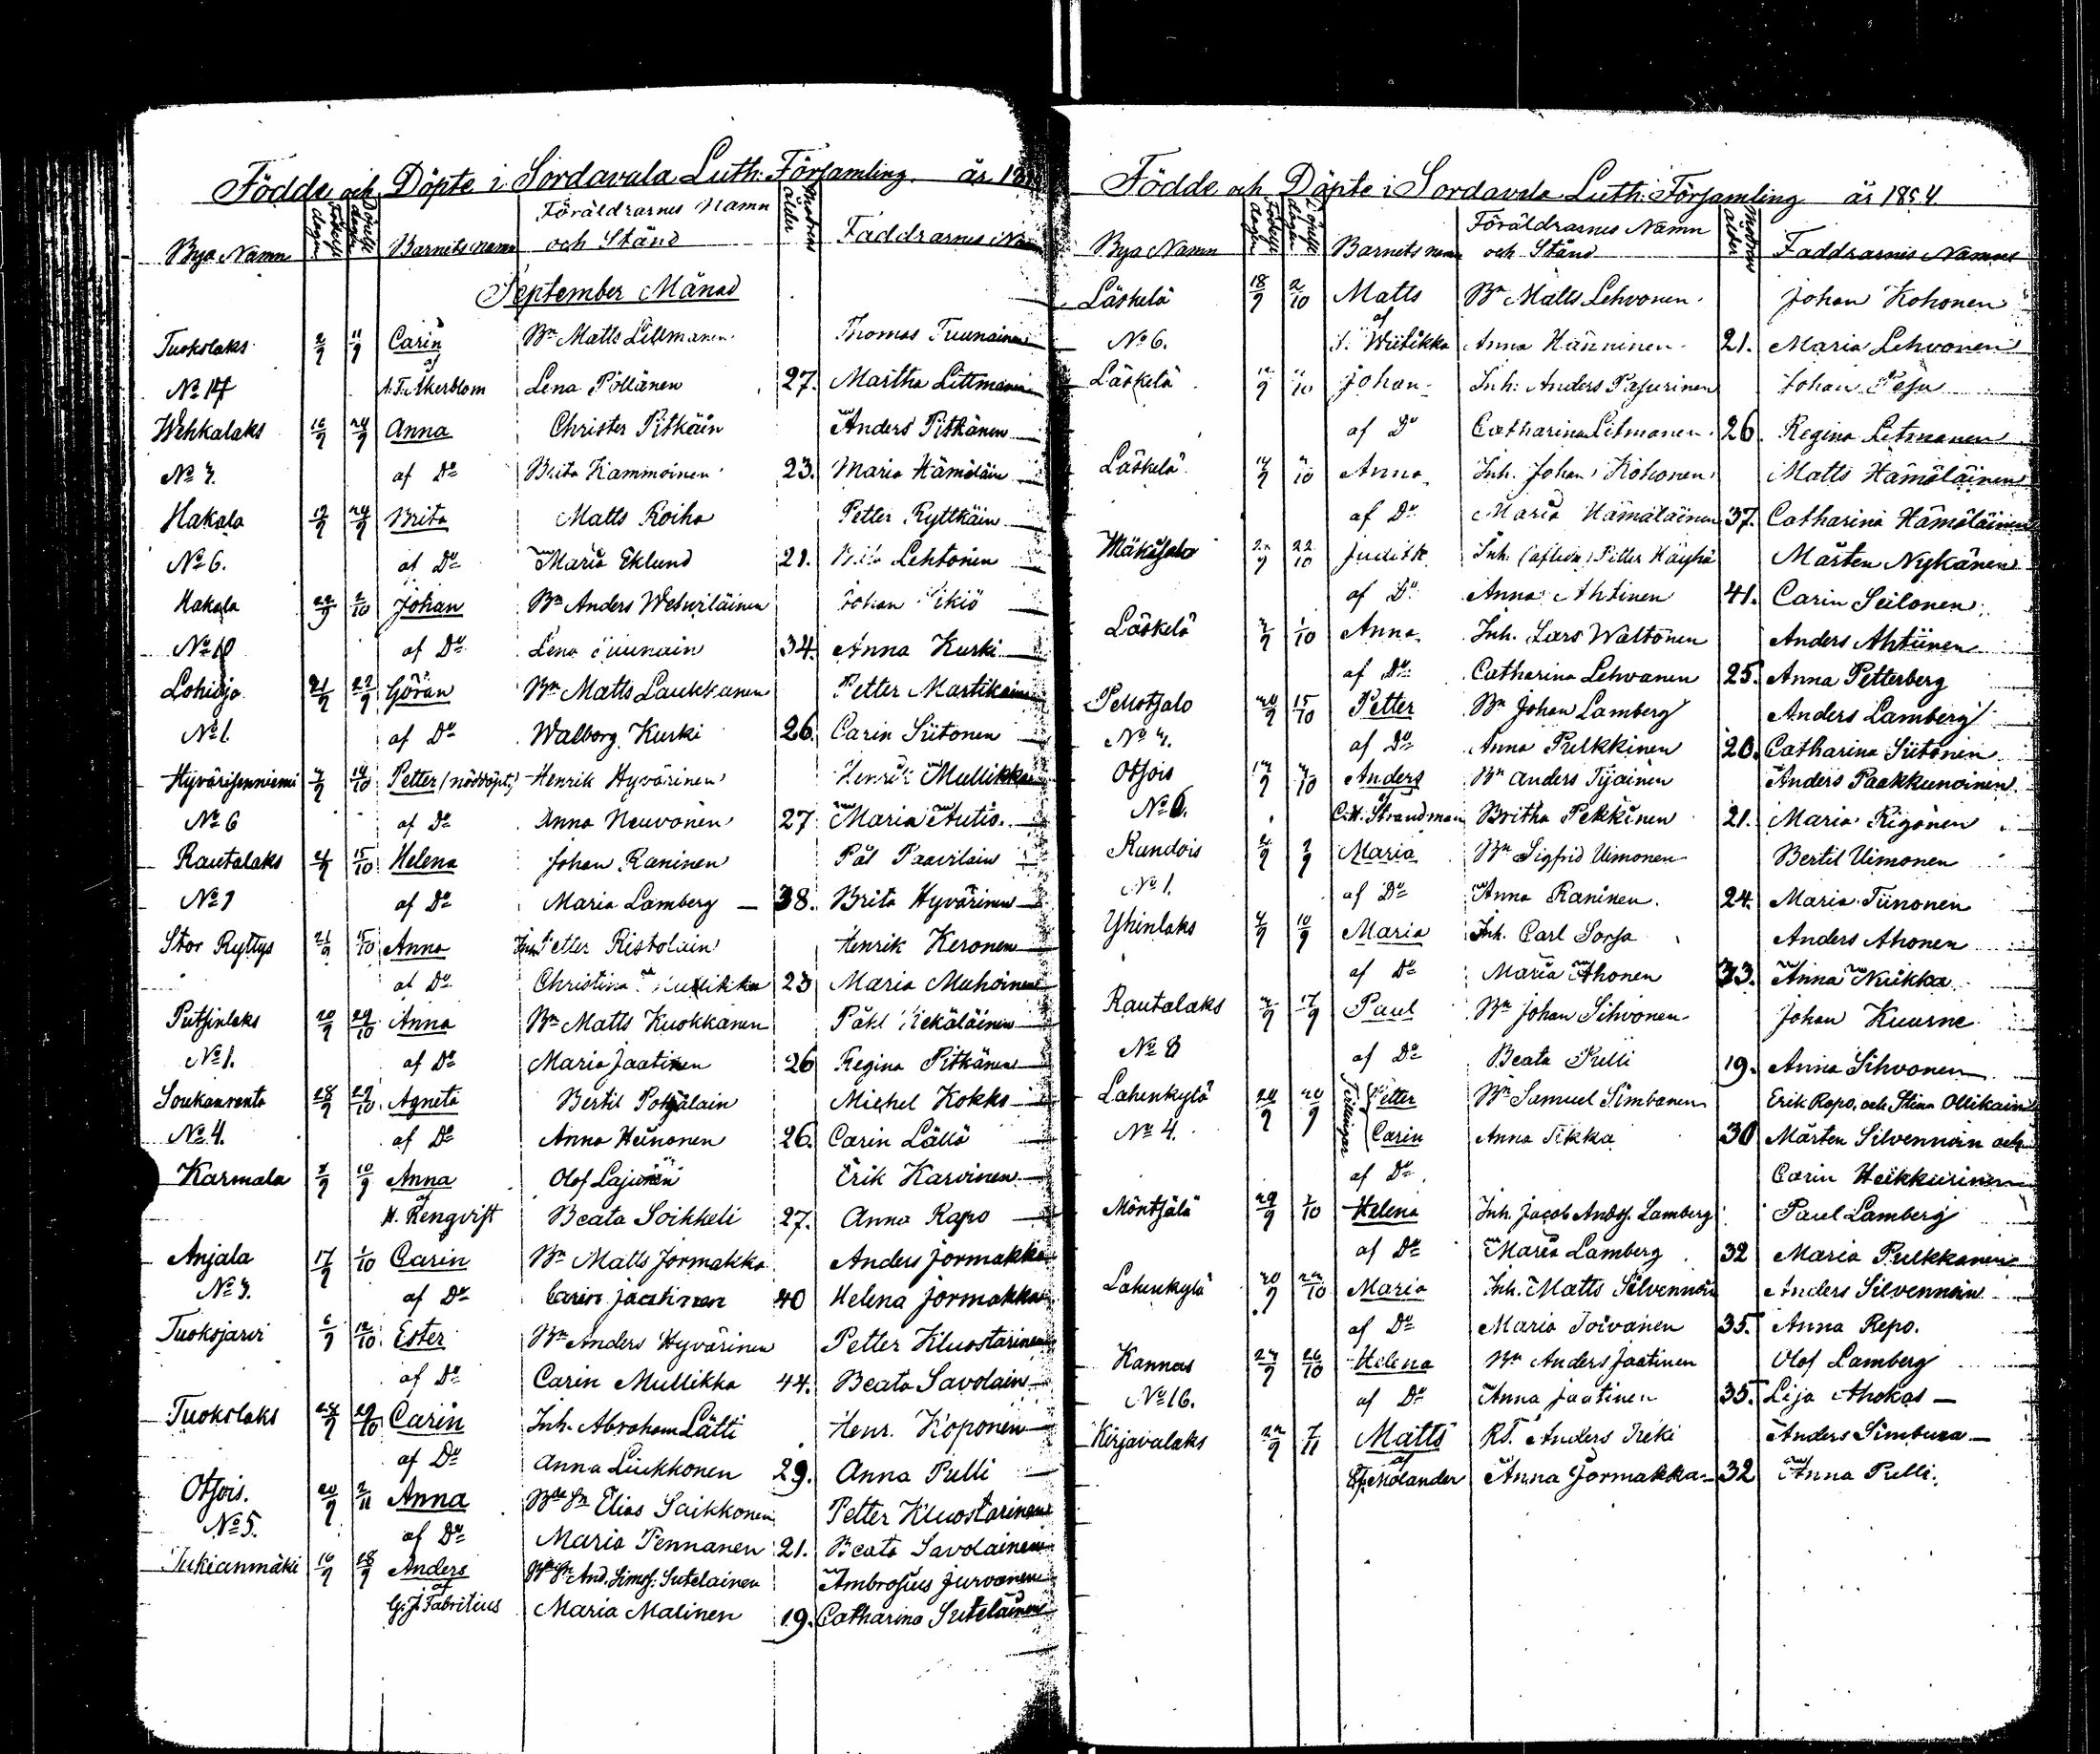 Födde och Döpte i Sordavala Luth: Församling år 18
Bya Namn Födelse dagen Döpelse dagen Barnets namn Föräldrarnes Namn och Stånd Modrens ålder Faddrarnes Namn
September Månad
Tuokslaks 2/9 11/9 Carin Bn Matts Littmanen Thomas Tuunainen
No 17 af A. F. Akerblom Lena Pöllänen 27. Martha Littmanen
Wehkalaks 16/9 24/9 Anna Christer Pitkäin Anders Pitkänen
No 7. af Do Brita Kammoinen 23. Maria Hämäläin
Hakala 17/9 24/9 Brita Matts Roiha Petter Ryttkäin
No 6. af Do Maria Eklund 21. Lehtonen
Hakala 22/9 2/10 Johan Bn Anders Wetwiläinen Johan
No 10 af Do Lena 34. Anna Kurki
Lohioja 21/9 27/9 Göran Bn Matts Laukkanen Petter Martikain
No 1. af Do Walborg Kurki 26. Carin Siitonen
Hyvärisenniemi 7/9 14/10 Petter (nöddöpt.) Henrik Hyvärinen Henrik Mullikka
No 6 af Do Anna Neuvonen 27 Maria Autio.
Rautalaks 4/9 15/10 Helena Johan Raninen Pål Paavilain
No 7 af Do Maria Lamberg — 38. Brita Hyvärinen
Stor Ryttys 21/9 15/10 Anna Inh Petter Ristolain Henrik Keronen
af Do Christina Mullikka 23 Maria Muhoinen
Putsinlaks 20/9 29/10 Anna Bn Matts Kuokkanen Påhl Kekäläinen
No 1. af Do Maria Jaatinen 26 Regina Pitkänen
Soukanranta 28/9 29/10 Agneta Bertil Pohjalain Michel Kokko
No 4. af Do Anna Heinonen 26. Carin Lällä
Karmala 3/9 10/9 Anna Olof Lajunen Erik Karvinen
af H. Rengvist Beata Soikkeli 27. Anna Rapo
Anjala 17/9 1/10 Carin Bn Matts Jormakka Anders Jormakka
No 3. af Do Carin Jaatinen 40 Helena Jormakka
Tuoksjarvi 6/9 12/10 Ester Bn Anders Hyvärinen Petter Kluostarinen
af Do Carin Mullikka 44. Beata Savolain
Tuokslaks 24/9 29/10 Carin Inh. Abraham Lätti Henr. Koponen
af Do Anna Liukkonen 29. Anna Pulli
Otsois. 20/9 2/11 Anna Bde Sn Elias Saikkonen Petter Kluostarinen
No 5. af Do Maria Pennanen 21. Beata Savolainen
Tukianmäki 16/9 18/9 Anders Bde Sn And. Simos: Sutelainen Ambrosius Jurvanen
af G. J. Fabritius Maria Malinen 19. Catharina Suteläinen
Födde och Döpte i Sordavala Luth: Församling år 1854
Bya Namn Födelse dagen Döpelse dagen Barnets namn Föräldrarnes Namn och Stånd Modrens ålder Faddrarnes Namn
Läskelä 18/9 2/10 Matts Bn Matts Lehvonen Johan Kohonen
No 6. af Wiitikka Anna Hänninen 21. Maria Lehvonen
Läskelä 12/9 /10 Johan Inh: Anders Pasurinen Johan Pesu
af Do Catharina Litmanen 26. Regina Litmanen
Läskelä 14/9 /10 Anna Inh. Johan Kohonen Matts Hämäläinen
af Do Maria Hämäläinen 37. Catharina Hämäläinen
Mäkisalo 2/9 22/10 Judith Inh. (afliden) Petter Häyhä Mårten Nykänen
af Do Anna Ahtinen 41. Carin Seilonen
Läskelä 3/9 1/10 Anna Inh. Lars Waltonen Anders Ahtiinen
af Do Catharina Lehvanen 25. Anna Petterberg
Pellotsalo 20/9 15/10 Petter Bn Johan Lamberg Anders Lamberg
No 4. af Do Anna Pulkkinen 20. Catharina Siitonen
Otsois 17/9 /10 Anders Bn Anders Tijainen Anders Paakkunoinen
No 6. af C. H. Strandman Britha Pekkinen 21. Maria Rigonen
Rundois 2/9 3/9 Maria Bn Sigfrid Uimonen Bertil Uimonen
No 1. af Do Anna Raninen 24. Maria Tiinonen
Yhinlaks 4/9 10/9 Maria Inh. Carl Sorsa Anders Ahonen
af Do Maria Ahonen 33. Anna Nuikka
Rautalaks 3/9 17/9 Paul Bn Johan Sihvonen Johan Kuurne
No 8 af Do Beata Pulli 19. Anna Sihvonen
Lahenkylä 20/9 20/9 Tvillingar Petter Bn Samuel Simbanen Erik Ropo, och Stina Ollikain
No 4. Carin Anna Sikka 30 Mårten Silvennoin och
af Do Carin Heikkurinen
Möntsälä 29/9 1/10 Helena Inh. Jacob Ands. Lamberg Paul Lamberg
af Do Maria Lamberg 32 Maria Pulkkanen
Lahenkylä 20/9 22/10 Maria Inh. Matts Silvennoin Anders Silvennoin
af Do Maria Toivanen 35. Anna Repo.
Kannas 27/9 26/10 Helena Bn Anders Jaatinen Olof Lamberg
No 16. af Do Anna Jaatinen 35. Lija Ahokas —
Kirjavalaks 22/9 7/11 Matts RT. Anders Ireki Anders Simbura —
af Ef. Molander Anna Jormakka 32 Anna Pulli.